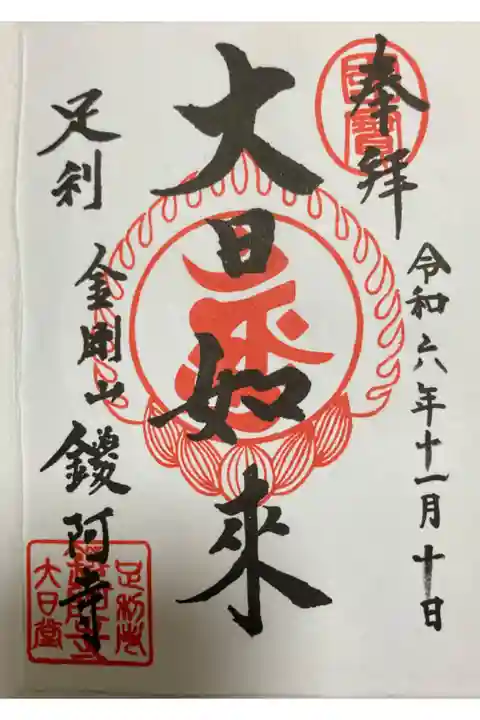 奉拝
令和六年十一月十日
大日如來
足利
金剛山
鑁阿寺
國寶
足利市
鑁阿寺
大日堂